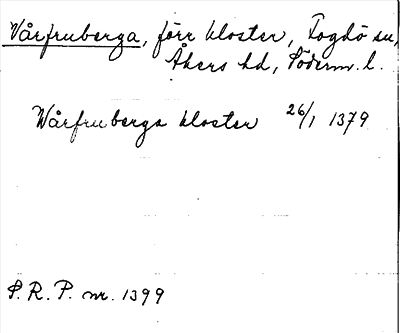 Vårfruberga, förr kloster, Fogdö sn,
Åkers hd, Söderm. l.
Wårfruberga kloster 26/1 1379
S.R.P. nr. 1399